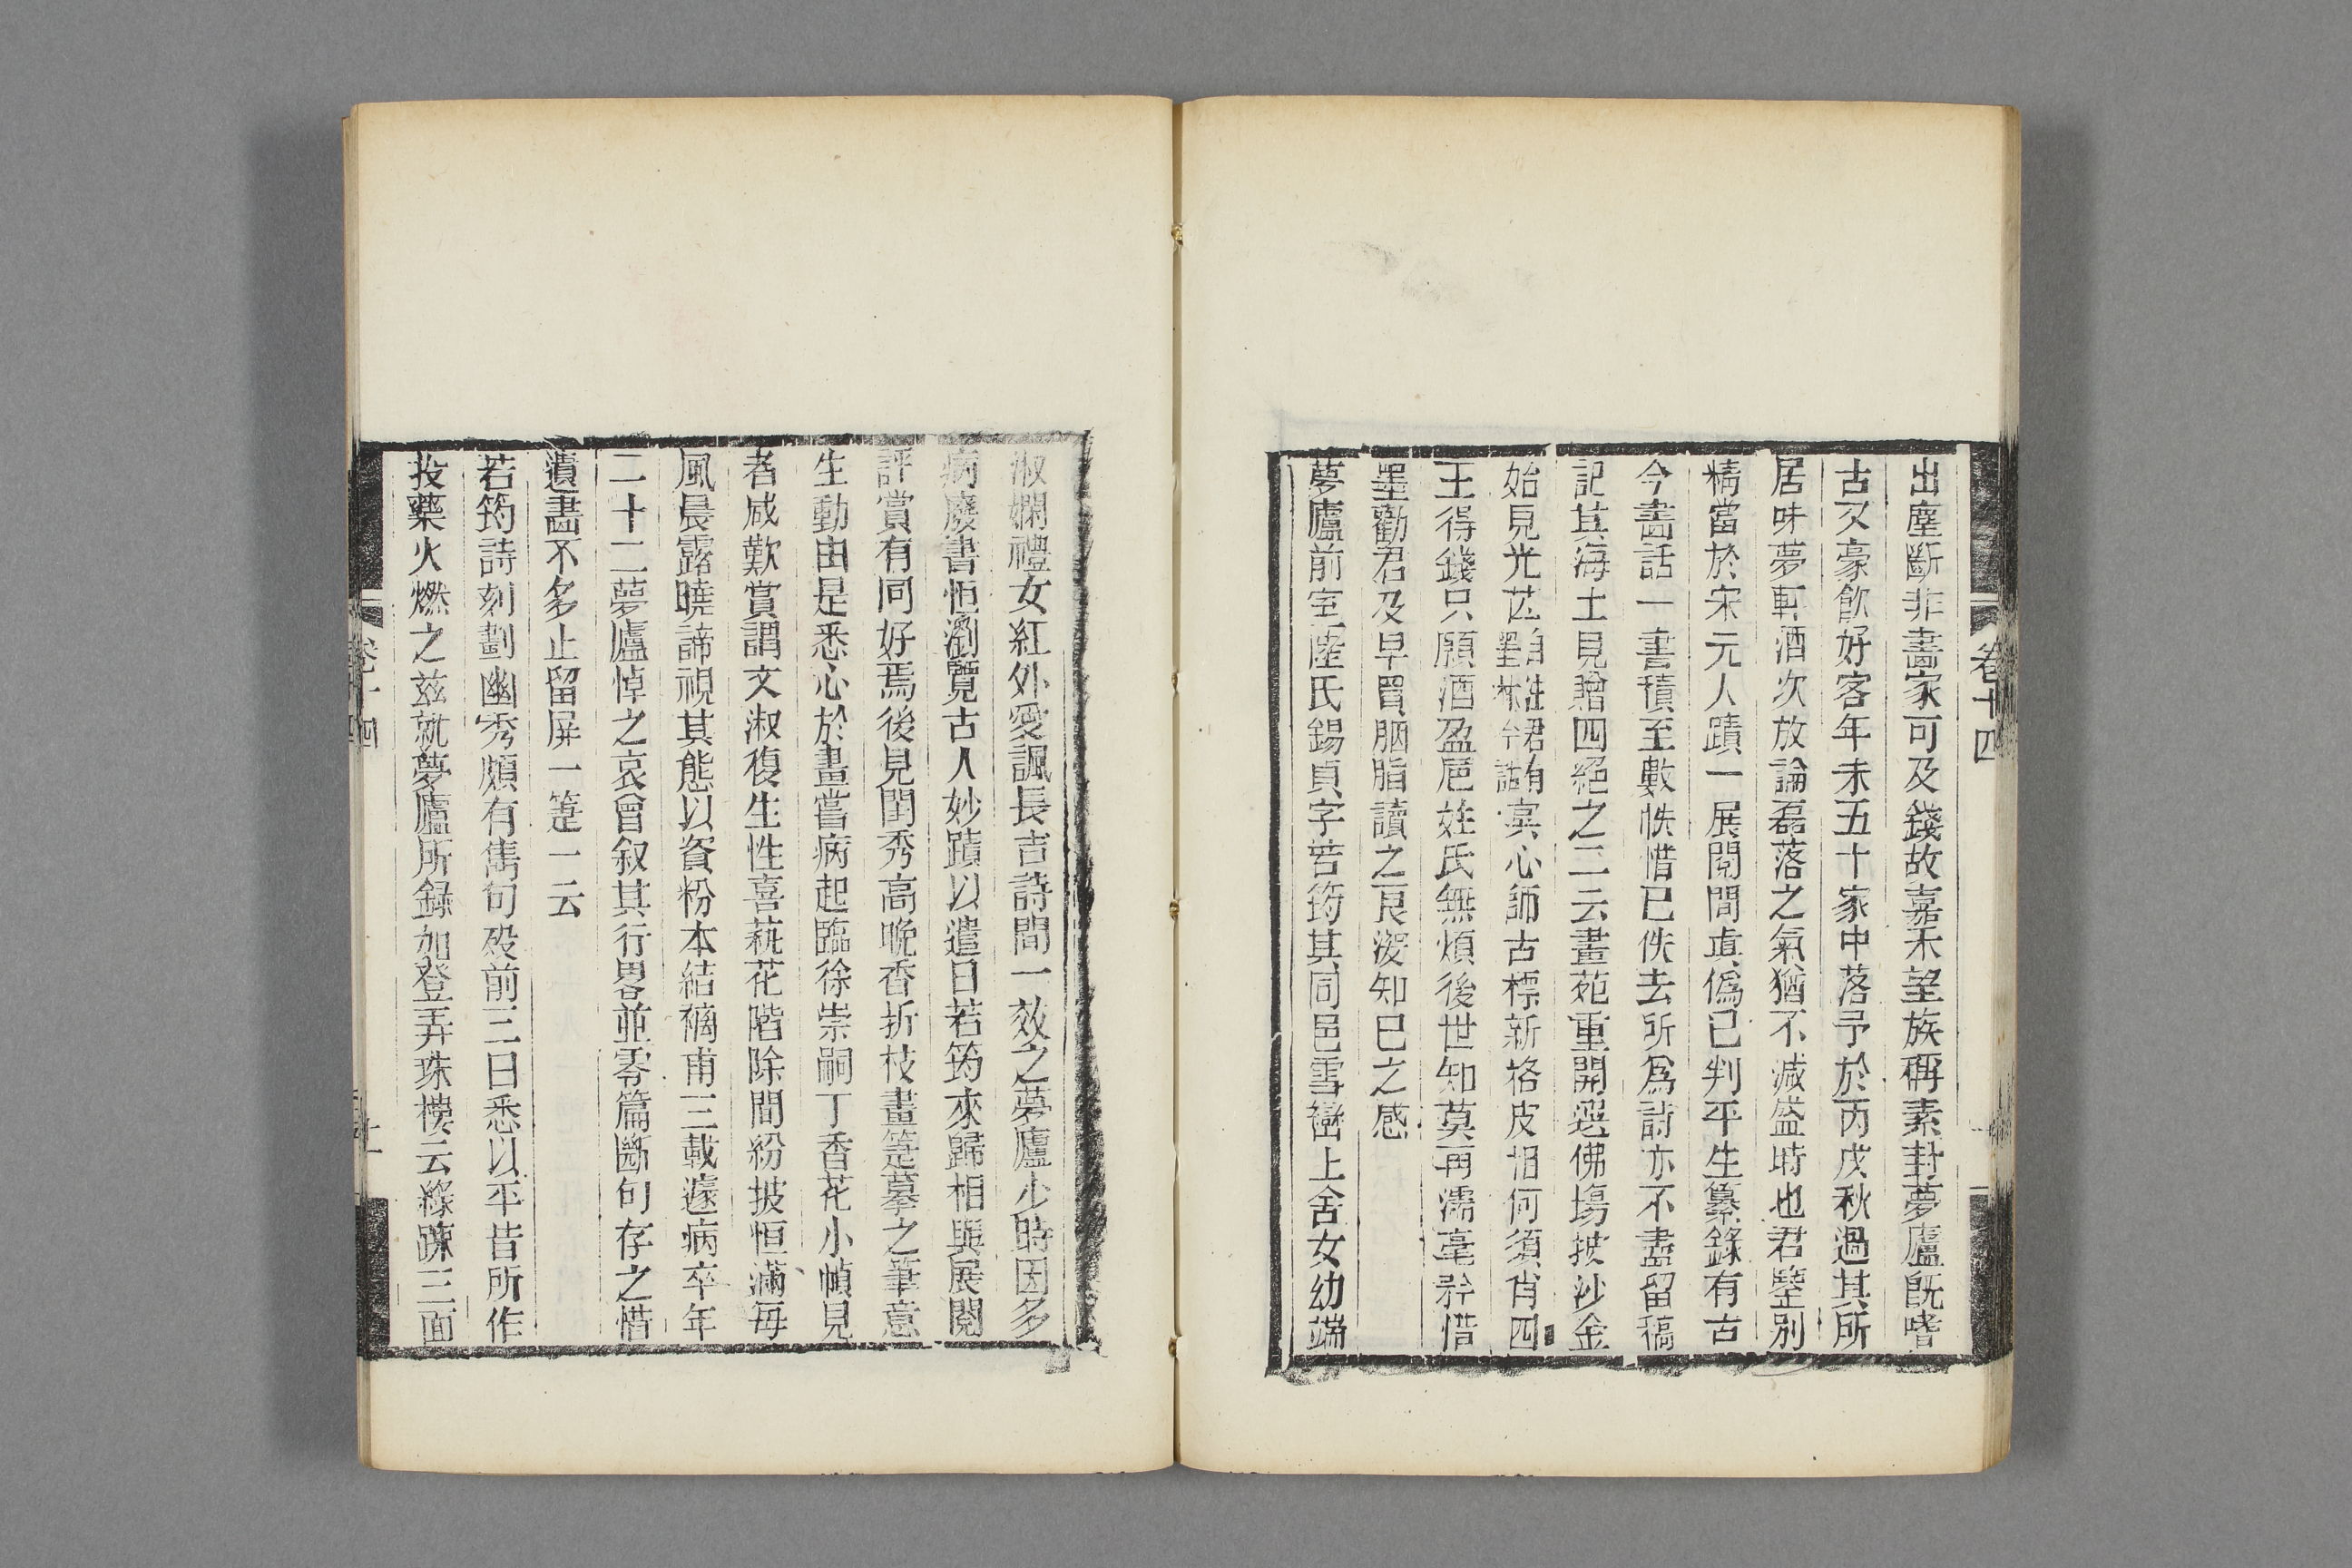 卷十四
出塵斷非畵家可及錢故嘉禾望族稱素封夢廬旣嗜
古又豪飮好客年未五十家中落予於丙戌秋過其所
居味夢軒酒次放論磊落之氣猶不減盛時也君鑒別
精當於宋元人蹟一展閱間眞僞已判平生纂錄有古
今畵話一書積至數帙惜已佚去所爲詩亦不盡留稿
記其海上見贈四絕之二云畫苑重開選佛塲披沙金
始見光芒自注君有墨林今話寞心師古標新格皮相何須肖四
王得錢只願酒盈巵姓氏無煩後世知莫再濡毫矜惜
墨勸君及早買胭脂讀之良深知己之感
夢廬前室陸氏錫貞字若筠其同邑雪巒上舍女幼端
淑嫻禮女紅外愛諷長吉詩間一效之夢廬少時因多
病廢書恒瀏覽古人妙蹟以遣日若筠來歸相與展閱
評賞有同好焉後見閨秀高晚香折枝畫箑摹之筆意
生動由是悉心於畫嘗病起臨徐崇嗣丁香花小幀見
者咸歎賞謂文淑復生性喜蓺花階除間紛披恒滿每
風晨露曉諦視其態以資粉本結褵甫三載遽病卒年
二十二夢廬悼之哀曾叙其行畧並零篇斷句存之惜
遺畵不多止留屏一箑一云
若筠詩刻劃幽秀頗有雋句歿前三日悉以平昔所作
投藥火燃之茲就夢廬所錄如登弄珠樓云綠疎三面
卷十四